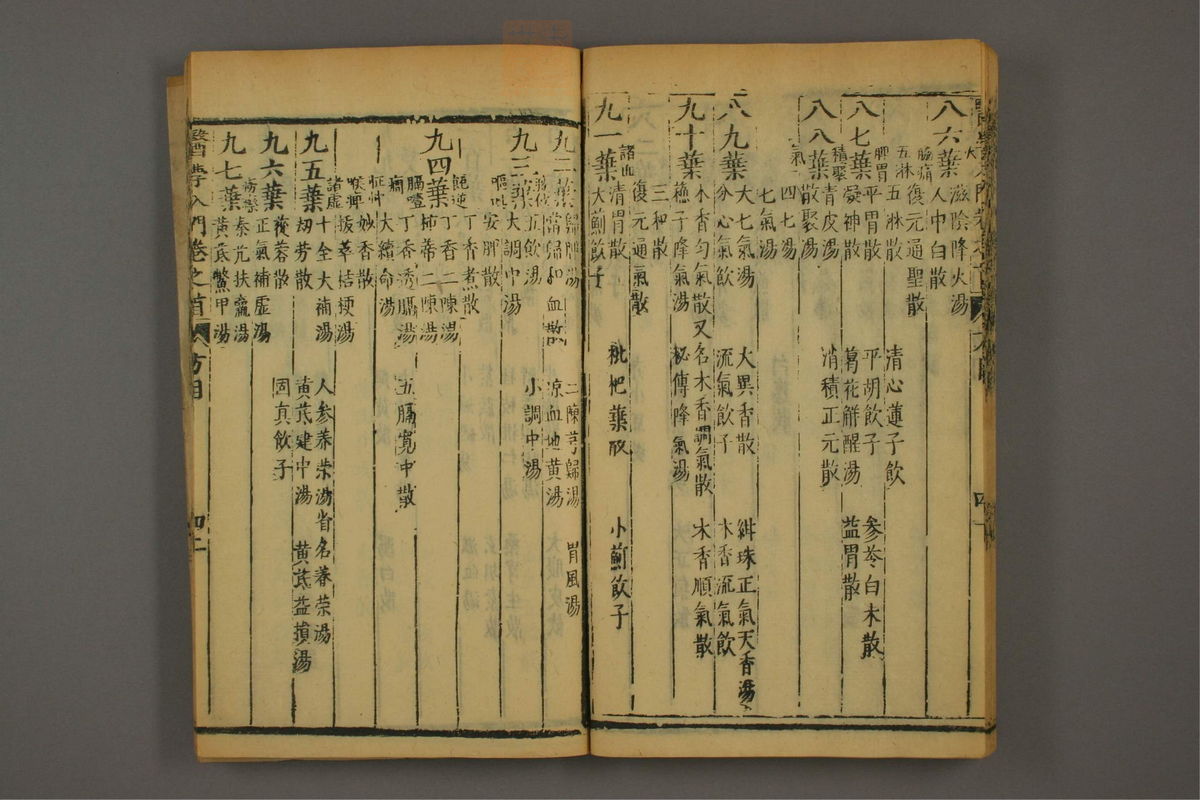 八六葉 火 滋陰降火湯 清心蓮子飲
人中白散
腦痛 復元通聖散
五淋 五淋散
八七葉 脾胃 平胃散 平胡飲子 參苓白朮散
凝神散 葛花解醒湯 益胃散
積聚 青皮湯 消積正元散
八八葉 散聚湯
氣 四七湯
七氣湯
八九葉 大七氣湯 大異香散 紺珠正氣天香湯
分心氣飲 流氣飲子 木香流氣飲
九十葉 木香勻氣散又名木香調氣散 木香順氣散
穩子降氣湯 秘傳降氣湯
三和散
復元通氣散
九一葉 諸血 清胃散 枇杷葉散 小薊飲子
大薊飲子
九二葉 歸脾湯 二陳芎歸湯 胃風湯
當歸和血散 涼血地黃湯
五飲湯 小調中湯
九三葉 大調中湯
嘔吐 安脾散
丁香煮散
九四葉 飽逆 丁香二陳湯
柿蒂二陳湯
膈噎 丁香透膈湯 五膈寬中散
癇 大續命湯
怔忡 妙香散
喉痺 拔萃桔梗湯
九五葉 諸虛 十全大補湯 人參養榮湯省名養榮湯
劫勞散 黃芪建中湯 黃芪益損湯
蓯蓉散 固真飲子
九六葉 正氣補虛湯
勞瘵 秦艽扶羸湯
九七葉 黃芪鱉甲湯
醫學入門卷之首 方目 四十一